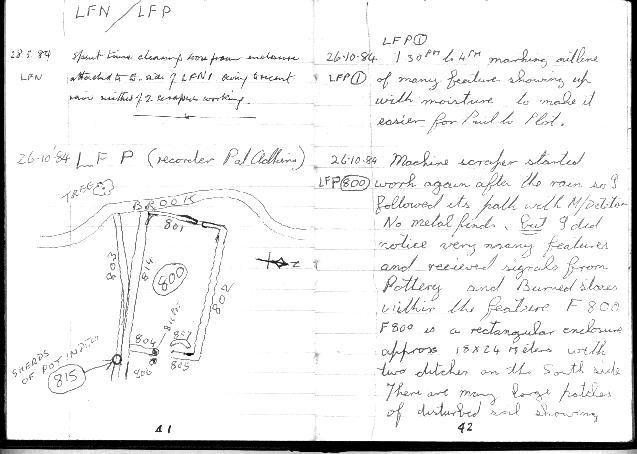 LFN / LFP
28.5.84 Spent time cleaning loose from enclosure
LFN attached to side of LFN1 owing to recent
rain neither of 2 scrapers working.
26·10·84 LFP (recorder Pat Adkins)
TREE
BROOK
801
803
814
800
802
N
804
807
806
805
SHERDS
OF POT IN DITCH
815
41
LFP ①
26·10·84 1 30PM to 4PM marking outline
LFP ① of many feature showing up
with moisture to make it
easier for Paul to Plot.
26·10·84 Machine scraper started
LFP 800 work again after the rain so I
followed its path with M/Detector
No metal finds. But I did
notice very many features
and recieved signals from
Pottery and Burned stones
within the feature F 800
F800 is a rectangular enclosure
approx 18x24 Meters with
two ditches on the South side
There are many large patches
of disturbed soil showing
42